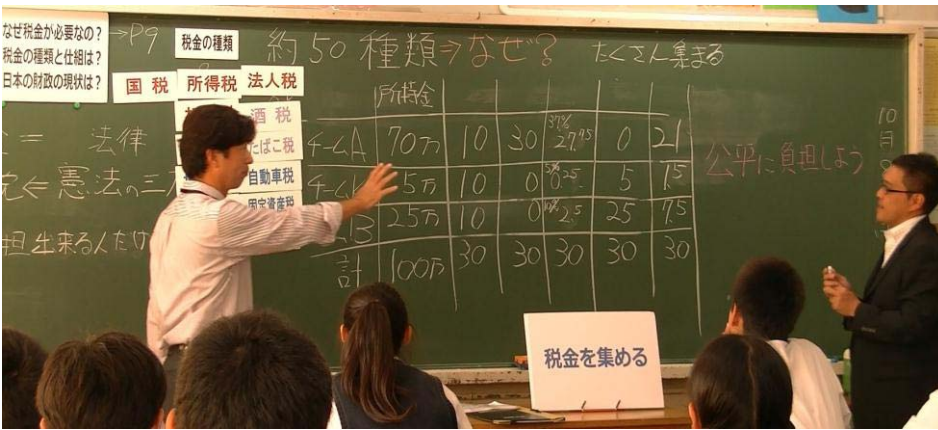 なぜ税金が必要なの?
税金の種類と仕組は?
日本の財政の現状は?
→P9
税金の種類
約50種類⇒なぜ?
たくさん集まる
国税
所得税
法人税
酒税
たばこ税
自動車税
固定資産税
= 法律
⇐憲法の三
担出来る人だけ
所持金
チームA 70万 10 30 37% 27.75 0 21
チーム 5万 10 0 5% 0.25 5 1.5
B 25万 10 0 10% 2.5 25 7.5
計 100万 30 30 30 30 30
公平に負担しよう
10
月
税金を集める